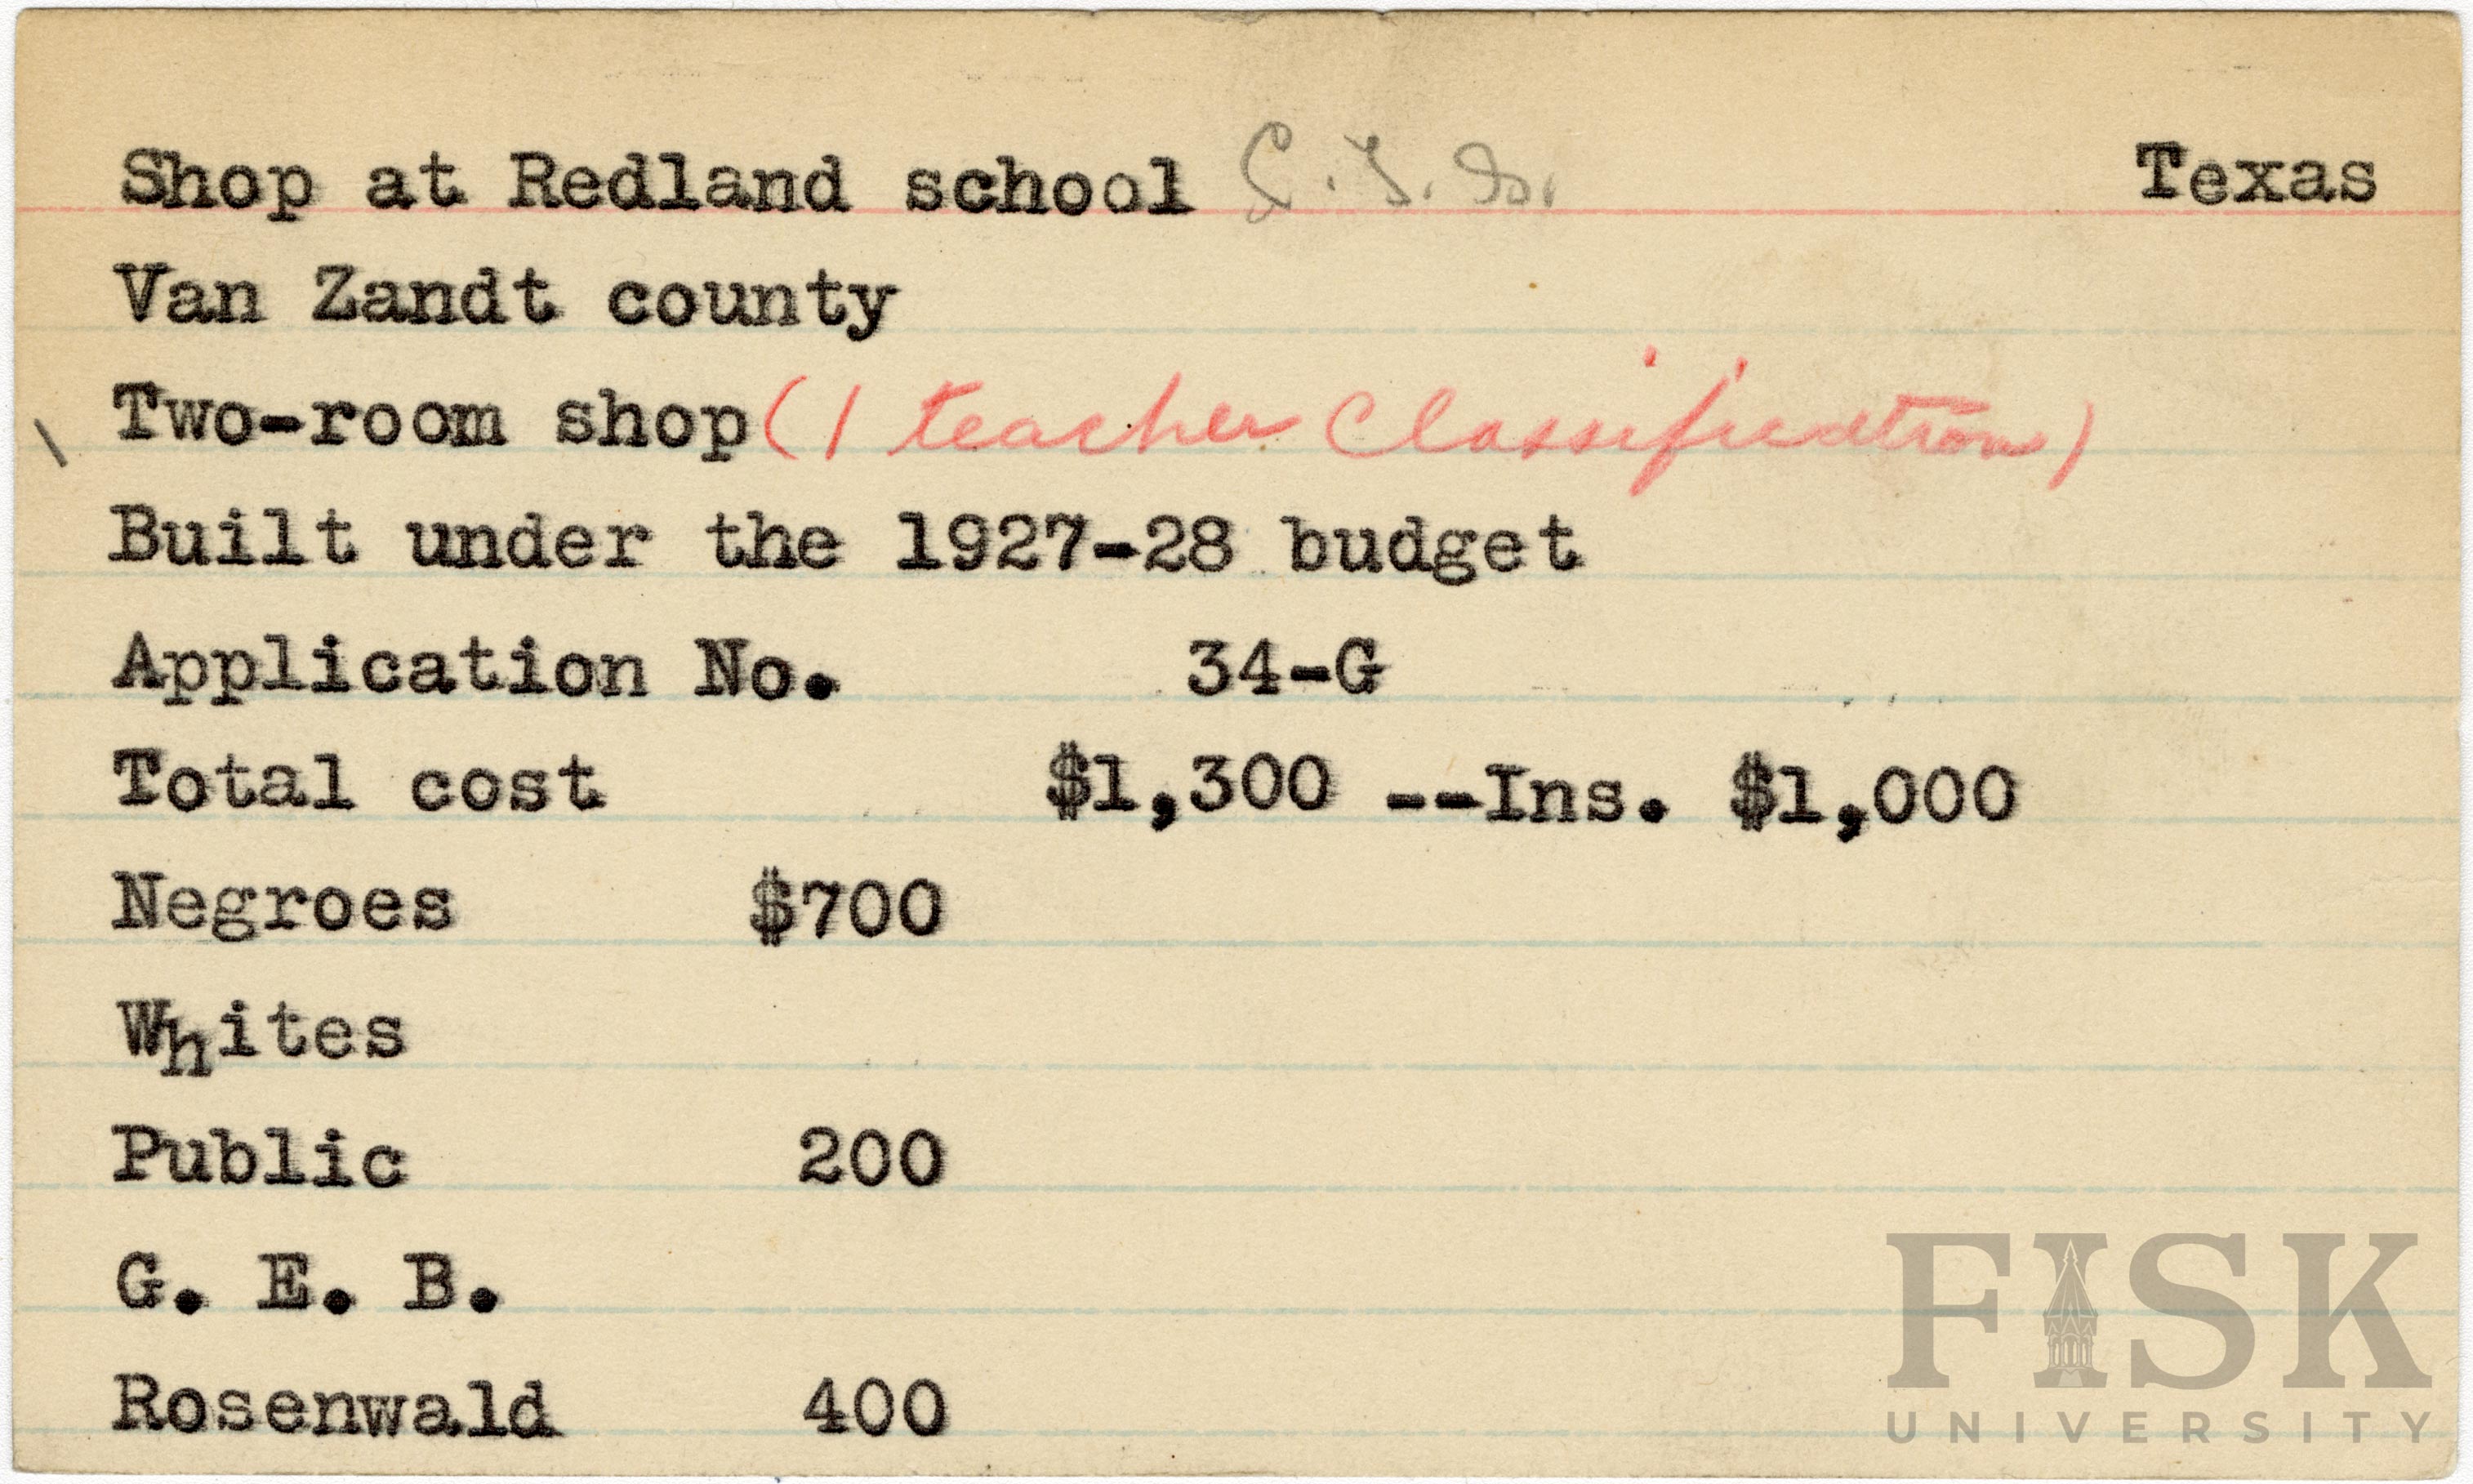 Shop at Redland school C.T.S. Texas
Van Zandt county
Two-room shop (1 teacher Classification)
Built under the 1927-28 budget
Application No. 34-G
Total cost $1,300 --Ins. $1,000
Negroes $700
Whites
Public 200
G. E. B.
Rosenwald 400
FISK
UNIVERSITY